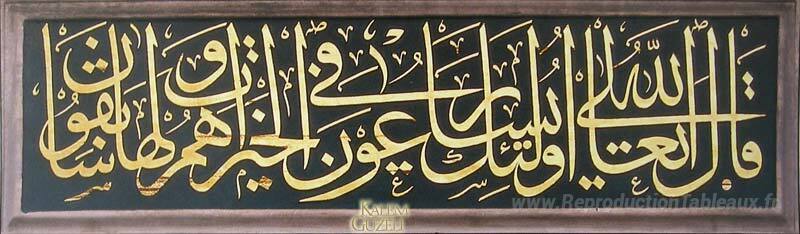 قال الله تعالى اولئك يسارعون في الخيرات وهم لها سابقون
KALEM
GÜZELİ
www.ReproductionTableaux.fr